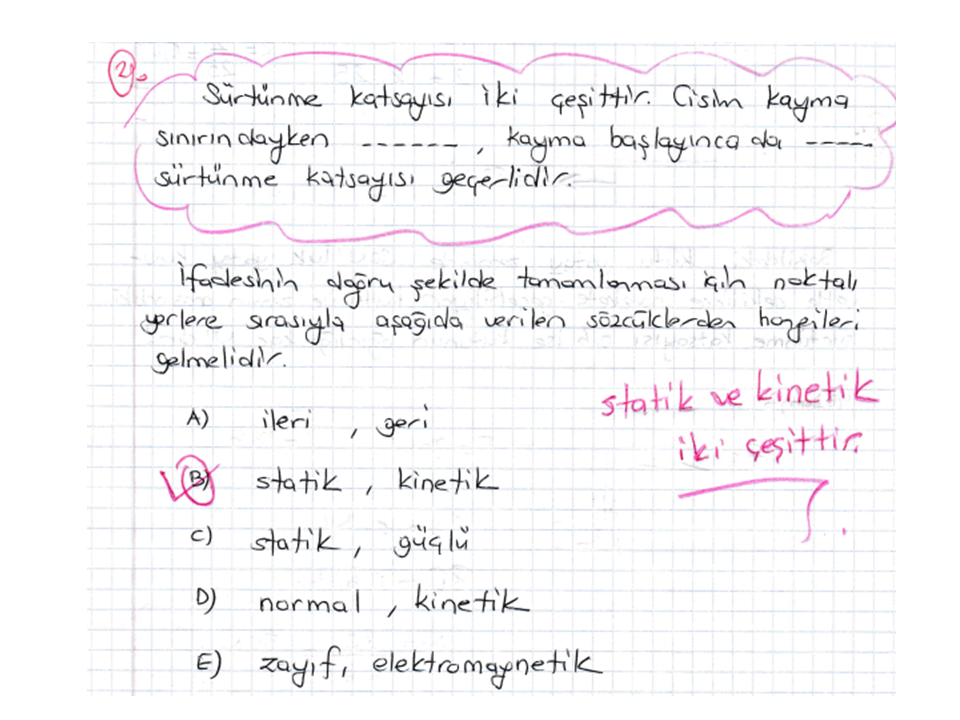 2.
Sürtünme katsayısı iki çeşittir. Cisim kayma
sınırındayken ------, kayma başlayınca da -----
sürtünme katsayısı geçerlidir.
İfadesinin doğru şekilde tamamlanması için noktalı
yerlere sırasıyla aşağıda verilen sözcüklerden hangileri
gelmelidir.
A) ileri, geri
B) statik, kinetik
C) statik, güçlü
D) normal, kinetik
E) zayıf, elektromagnetik
statik ve kinetik
iki çeşittir.